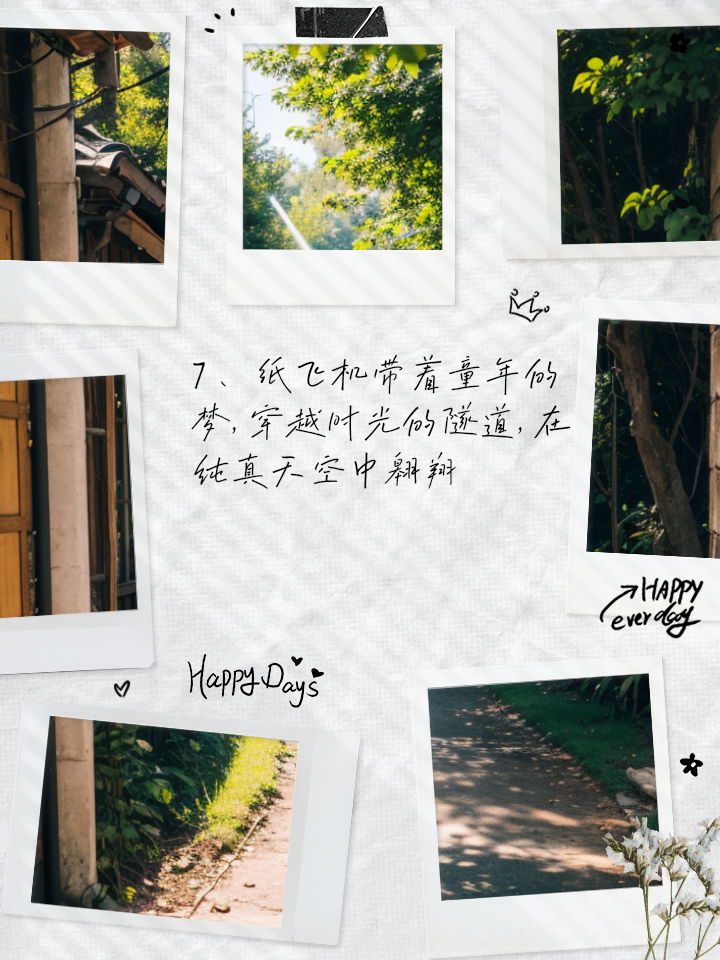 7、纸飞机带着童年的
梦,穿越时光的隧道,在
纯真天空中翱翔
HAPPY
everday
Happy Days